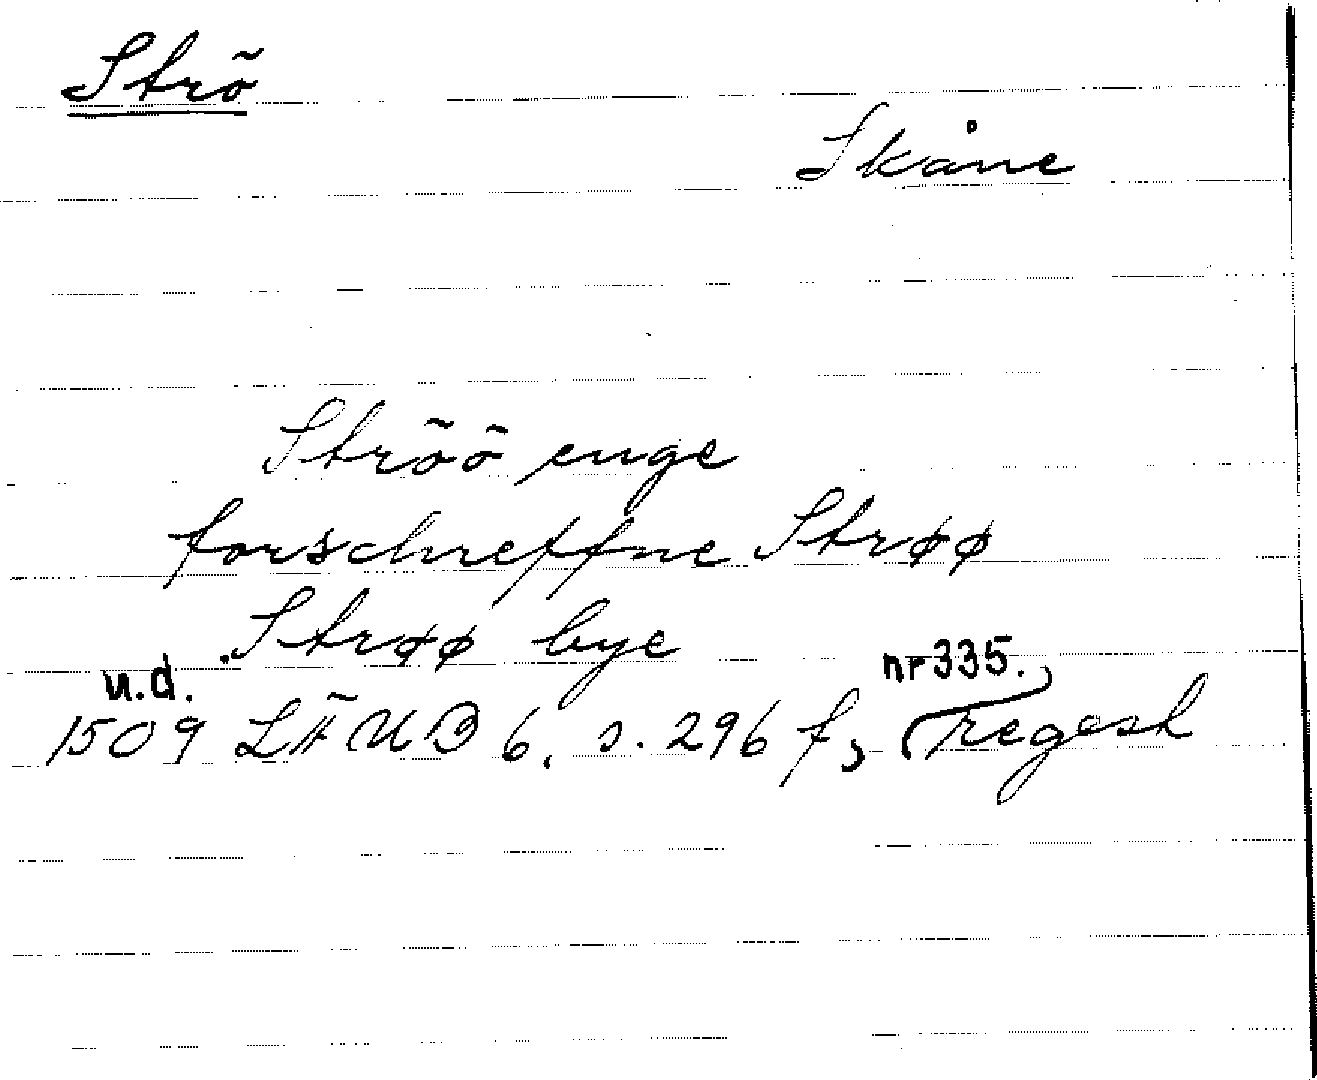 Strö
Skåne
Ströö enge
forschreffne Strøø
Strøø bye
u.d.
nr 335.
1509 LÄUB 6, s. 296 f, regest